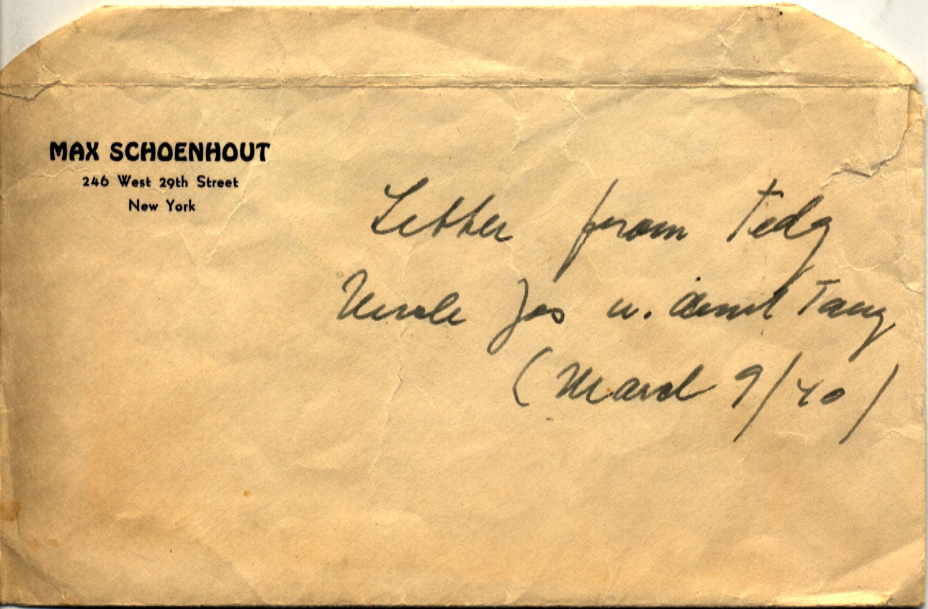 MAX SCHOENHOUT
246 West 29th Street
New York
Letter from Tedy
Uncle Jos u. Aunt Tany
(March 9/40)